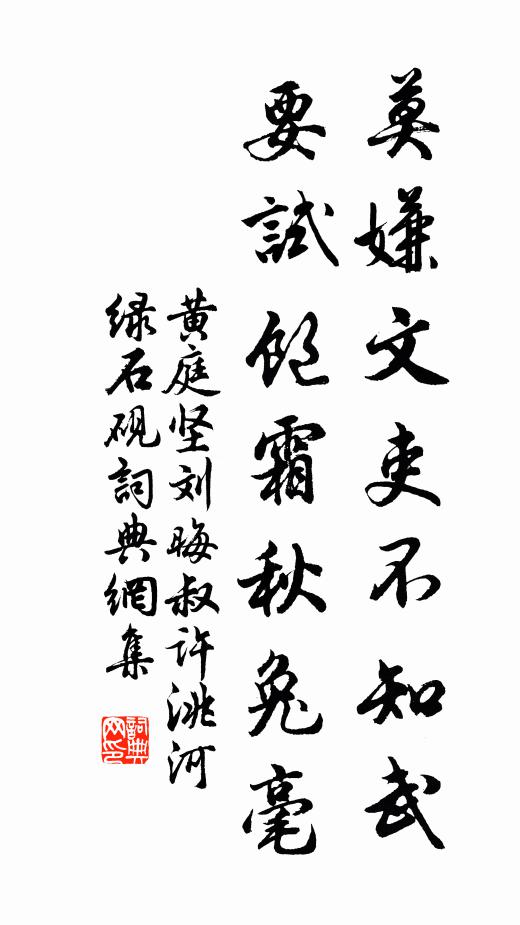 莫嫌文吏不知武
要試飽霜秋兔毫
黄庭坚刘晦叔许洮河
绿石砚詞典網集
詞典
网印